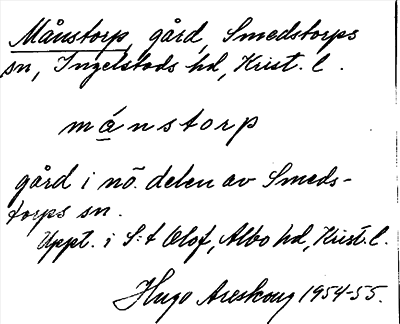 Månstorp, gård, Smedstorps
sn, Ingelstads hd, Krist. l.
månstorp
gård i nö. delen av Smeds-
torps sn.
Uppt. i S:t Olof, Albo hd, Krist. l.
Hugo Areskoug 1954-55.